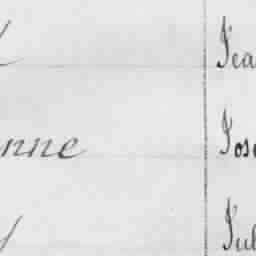 Jea
nne Jose
Jul